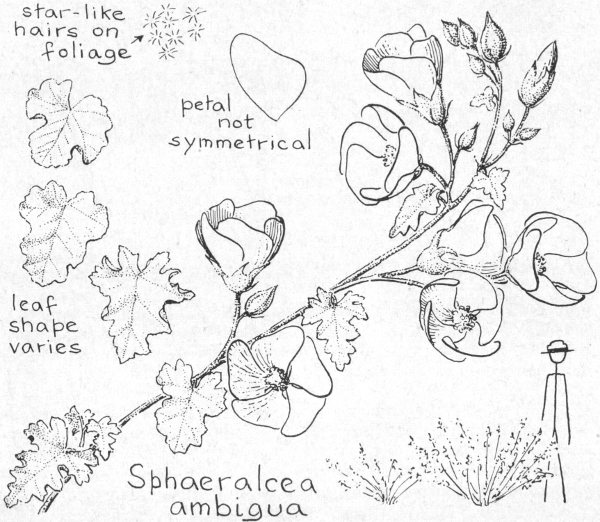 star-like
hairs on
foliage
petal
not
symmetrical
leaf
shape
varies
Sphaeralcea
ambigua